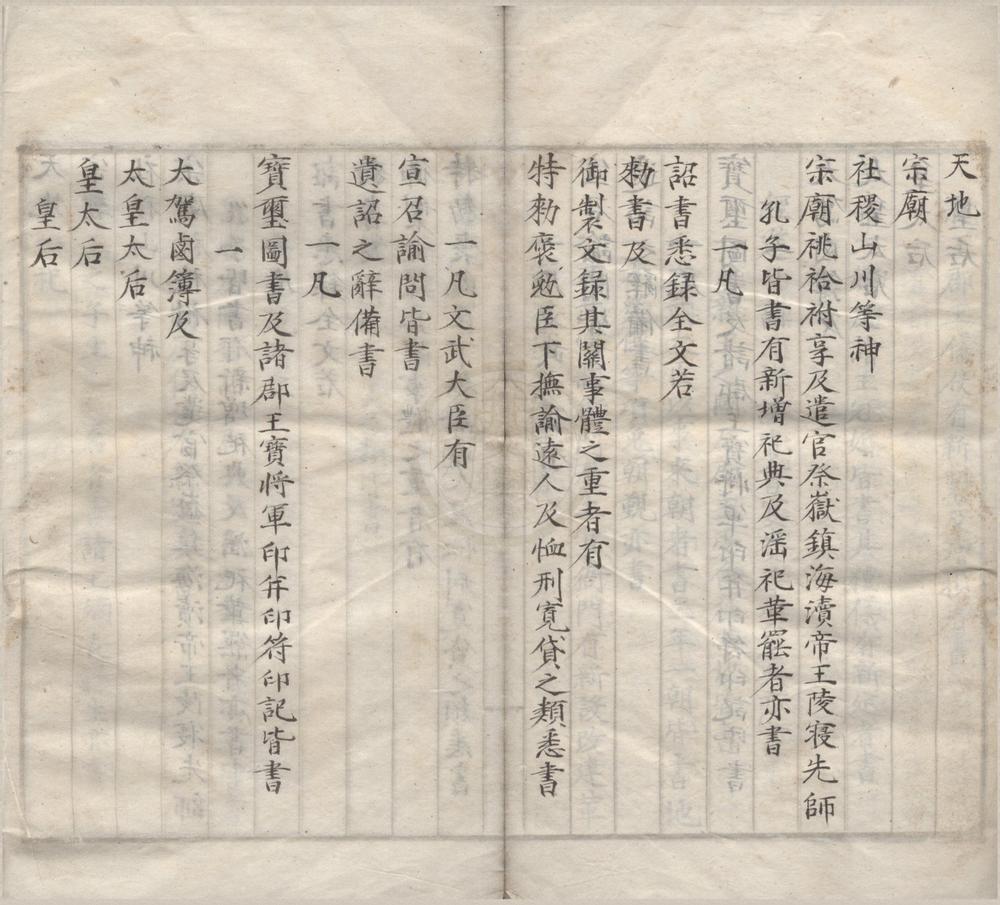 天地
宗廟
社稷山川等神
宗廟祧祫祔享及遣官祭嶽鎮海瀆帝王陵寑先師
孔子皆書有新增祀典及滛祀革罷者亦書
一凡
詔書悉録全文若
勑書及
御製文録其關事體之重者有
特勑褒勉臣下撫諭遠人及恤刑寬貸之類悉書
一凡文武大臣有
宣召諭問皆書
遺詔之辭備書
一凡
寶璽圖書及諸郡王寶將軍印并印符印記皆書
一
大駕鹵簿及
太皇太后
皇太后
皇后